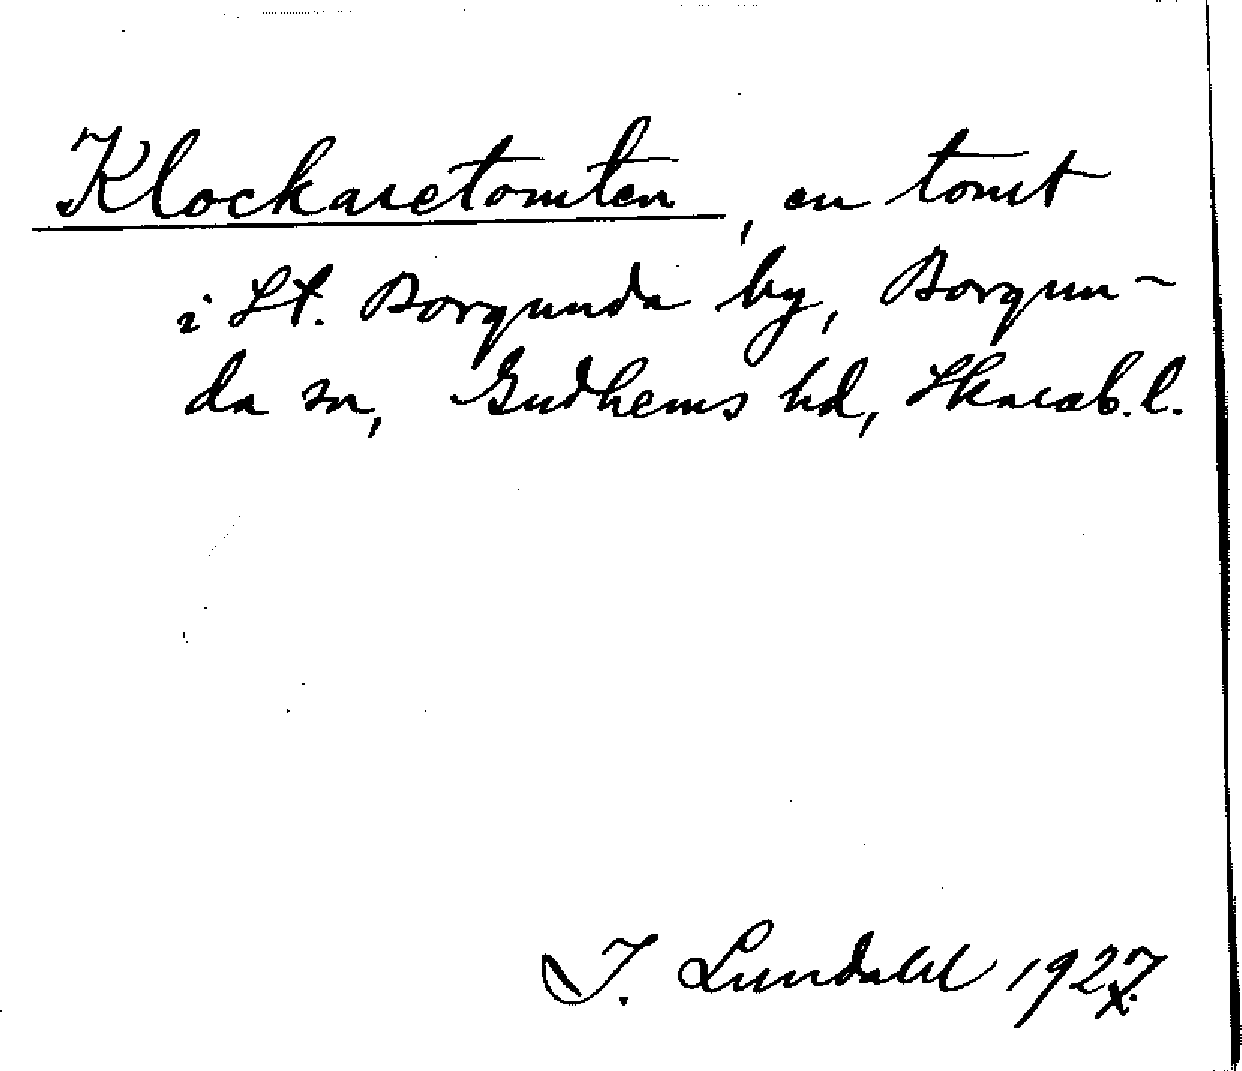 Klockaretomten, en tomt
i St. Borgunda by, Borgun-
da sn, Gudhems hd, Skarab. l.
I. Lundahl 1927.